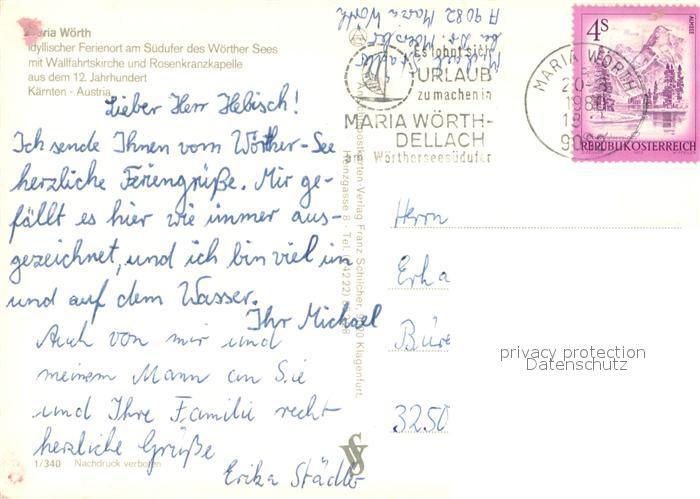 Maria Wörth
Idyllischer Ferienort am Südufer des Wörther Sees
mit Wallfahrtskirche und Rosenkranzkapelle
aus dem 12. Jahrhundert
Kärnten - Austria
Lieber Herr Hebisch!
Ich sende Ihnen vom Wörther-See
herzliche Feriengrüße. Mir ge-
fällt es hier wie immer aus-
gezeichnet, und ich bin viel im
und auf dem Wasser.
Ihr Michael
Auch von mir und
meinem Mann an Sie
und Ihre Familie recht
herzliche Grüße
Erika Städler
1/340 Nachdruck verboten
A 9082 Maria Wörth
Michael
Es lohnt sich
URLAUB
zu machen in
MARIA WÖRTH-
DELLACH
am Wörtherseesüdufer
MARIA WÖRTH
1980
4S
ALMSEE
REPUBLIK ÖSTERREICH
Ansichtspostkarten-Verlag Franz Schilcher, 9020 Klagenfurt,
Herrn
3250
privacy protection
Datenschutz